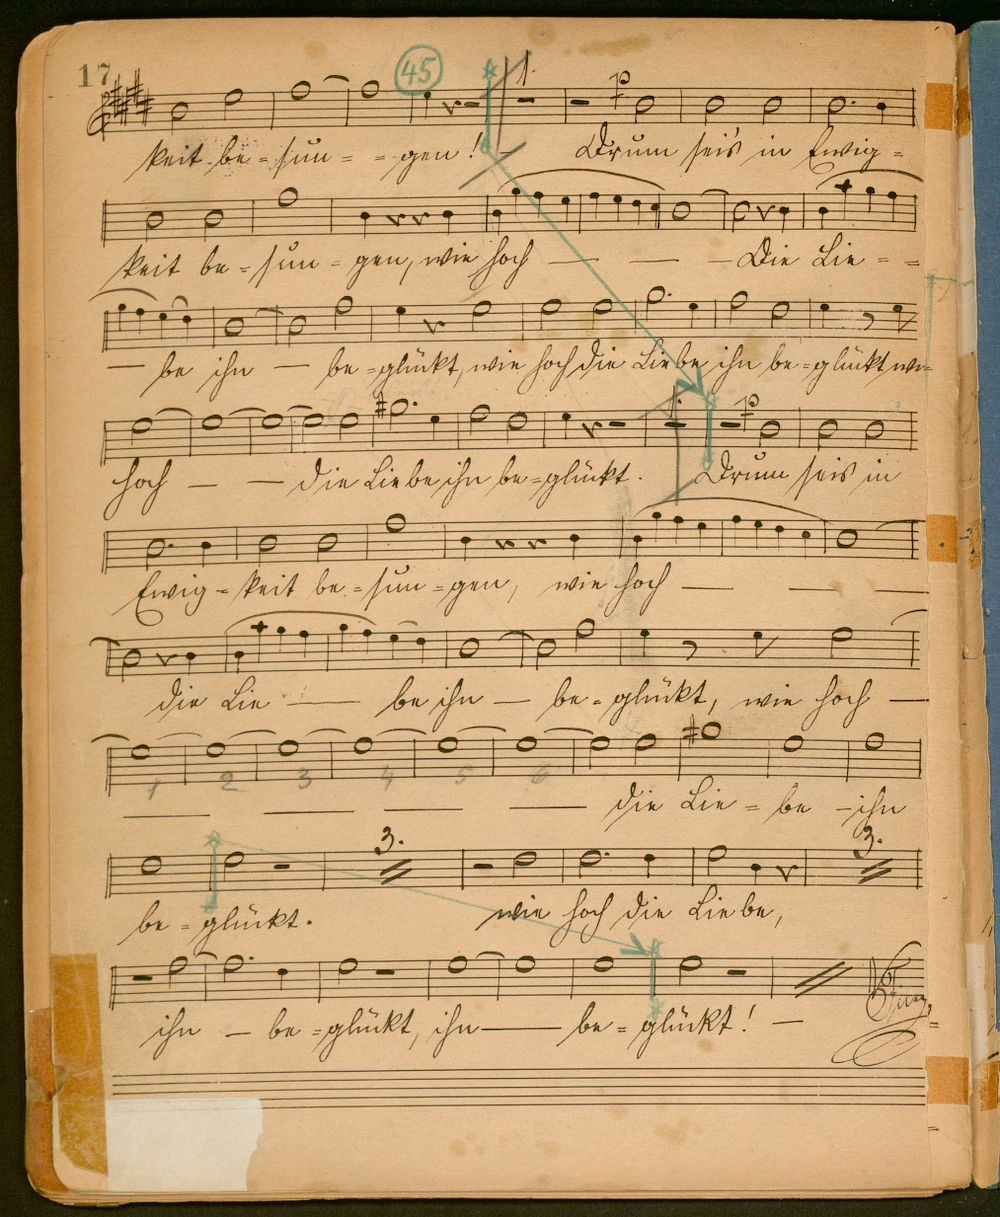 17
45
1.
keit be-sun--gen! - Drum seis in Ewig-
keit be-sun-gen, wie hoch — — — Die Lie--
— be ihn — be-glückt, wie hoch die Liebe ihn be-glückt wie
1.
hoch — — die Liebe ihn be-glückt. Drum seis in
Ewig-keit be-sun-gen, wie hoch — — —
die Lie — — be ihn — be-glückt, wie hoch —
1 2 3 4 5 6
— — — — die Lie-be-ihn
3. 3.
be-glückt. wie hoch die Liebe,
ihn — be-glückt, ihn — be-glückt! —